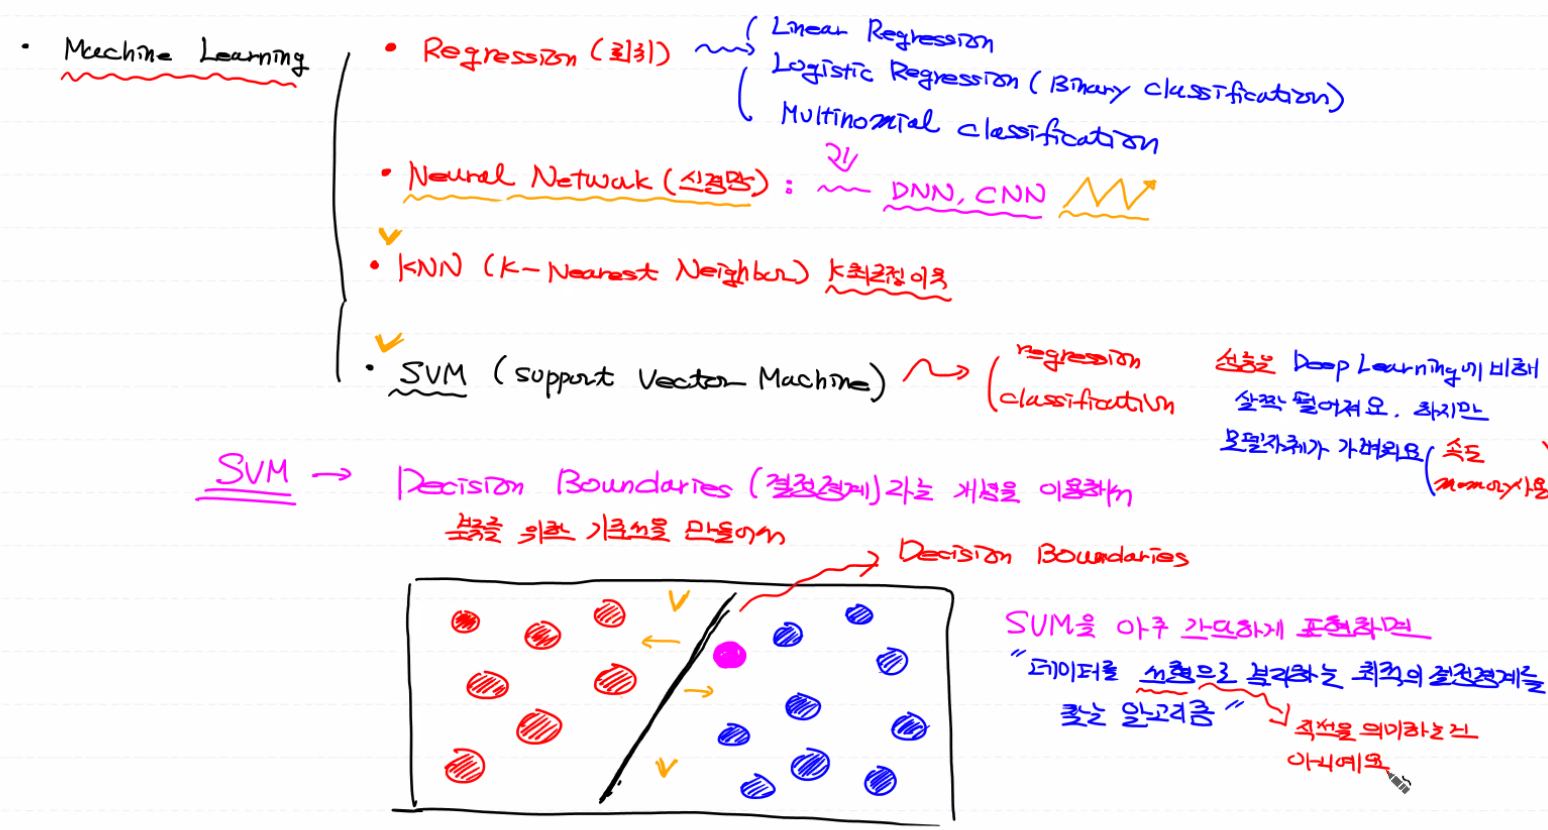 · Machine Learning
• Regression (회귀)
Linear Regression
Logistic Regression (Binary classification)
Multinomial classification
• Neural Network (신경망) : DNN, CNN
• KNN (K-Nearest Neighbor) K최근접이웃
• SVM (Support Vector Machine)
regression
classification
성능은 Deep Learning에 비해
살짝 떨어져요. 하지만
모델자체가 가벼워요 (속도
memory사용
SVM → Decision Boundaries (결정경계)라는 개념을 이용해서
분류를 위한 기준선을 만들어서
Decision Boundaries
SVM을 아주 간단하게 표현하면
"데이터를 선형으로 분리하는 최적의 결정경계를
찾는 알고리즘"
직선을 의미하는건
아니예요